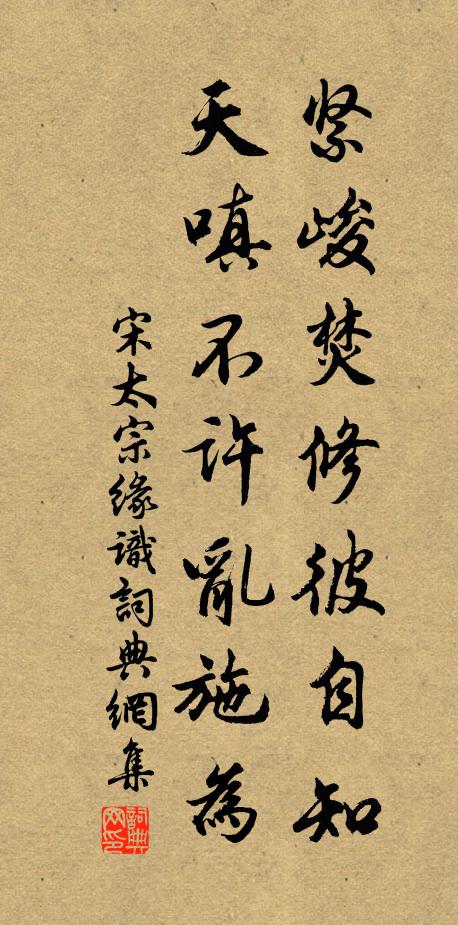 緊峻焚修彼自知
天嗔不許亂施為
宋太宗緣識詞典網集
詞典网印